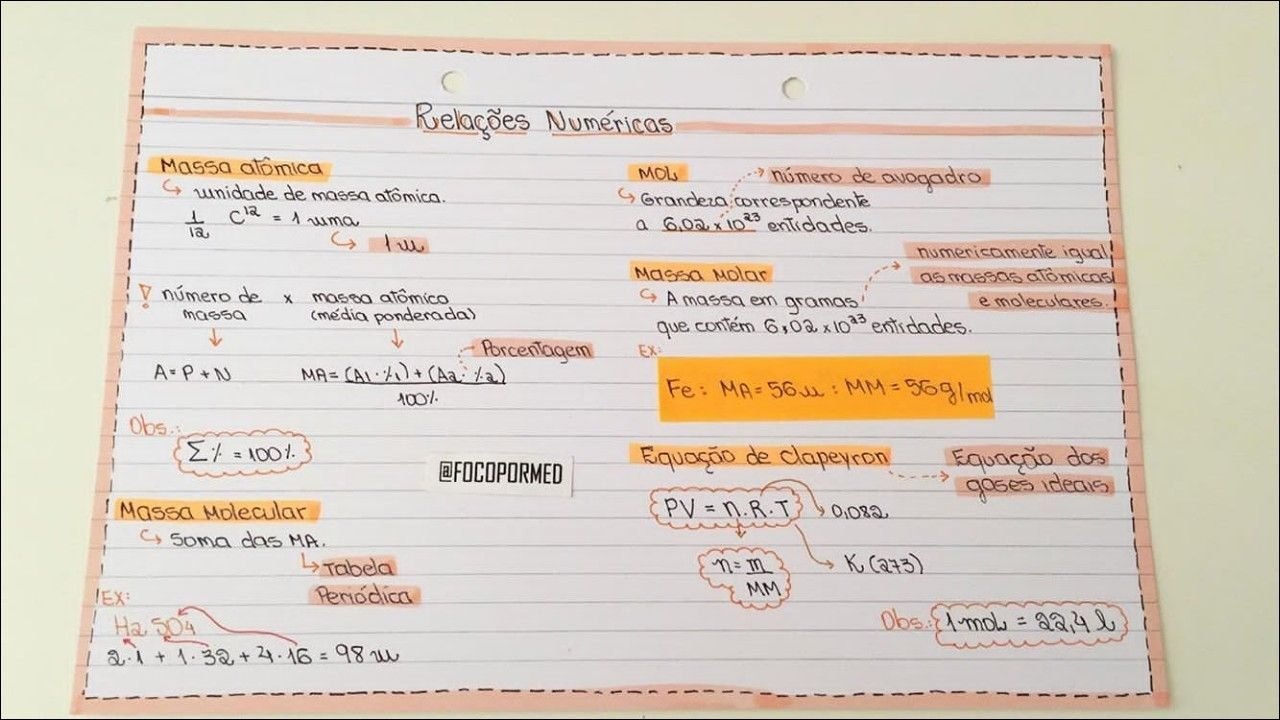 Relações Numéricas
Massa atômica
↳ unidade de massa atômica.
1/12 C¹² = 1 uma
↳ 1u
! número de massa x massa atômico (média ponderada)
↓ ↓
Porcentagem
A = P + N MA = (A1 · %1) + (A2 · %2)
100%
Obs.:
Σ% = 100%
@FOCOPORMED
Massa Molecular
↳ Soma das MA.
↳ Tabela
Periódica
EX:
H2 SO4
2·1 + 1·32 + 4·16 = 98 u
MOL → número de avogadro
↳ Grandeza correspondente
a 6,02 x 10²³ entidades.
Massa Molar
↳ A massa em gramas
que contém 6,02 x 10²³ entidades.
numericamente igual
as massas atômicas
e moleculares.
EX:
Fe: MA = 56u : MM = 56g/mol
Equação de Clapeyron → Equação dos
gases ideais
PV = n.R.T
0,082
K (273)
n = m
MM
Obs.: 1 mol = 22,4 l